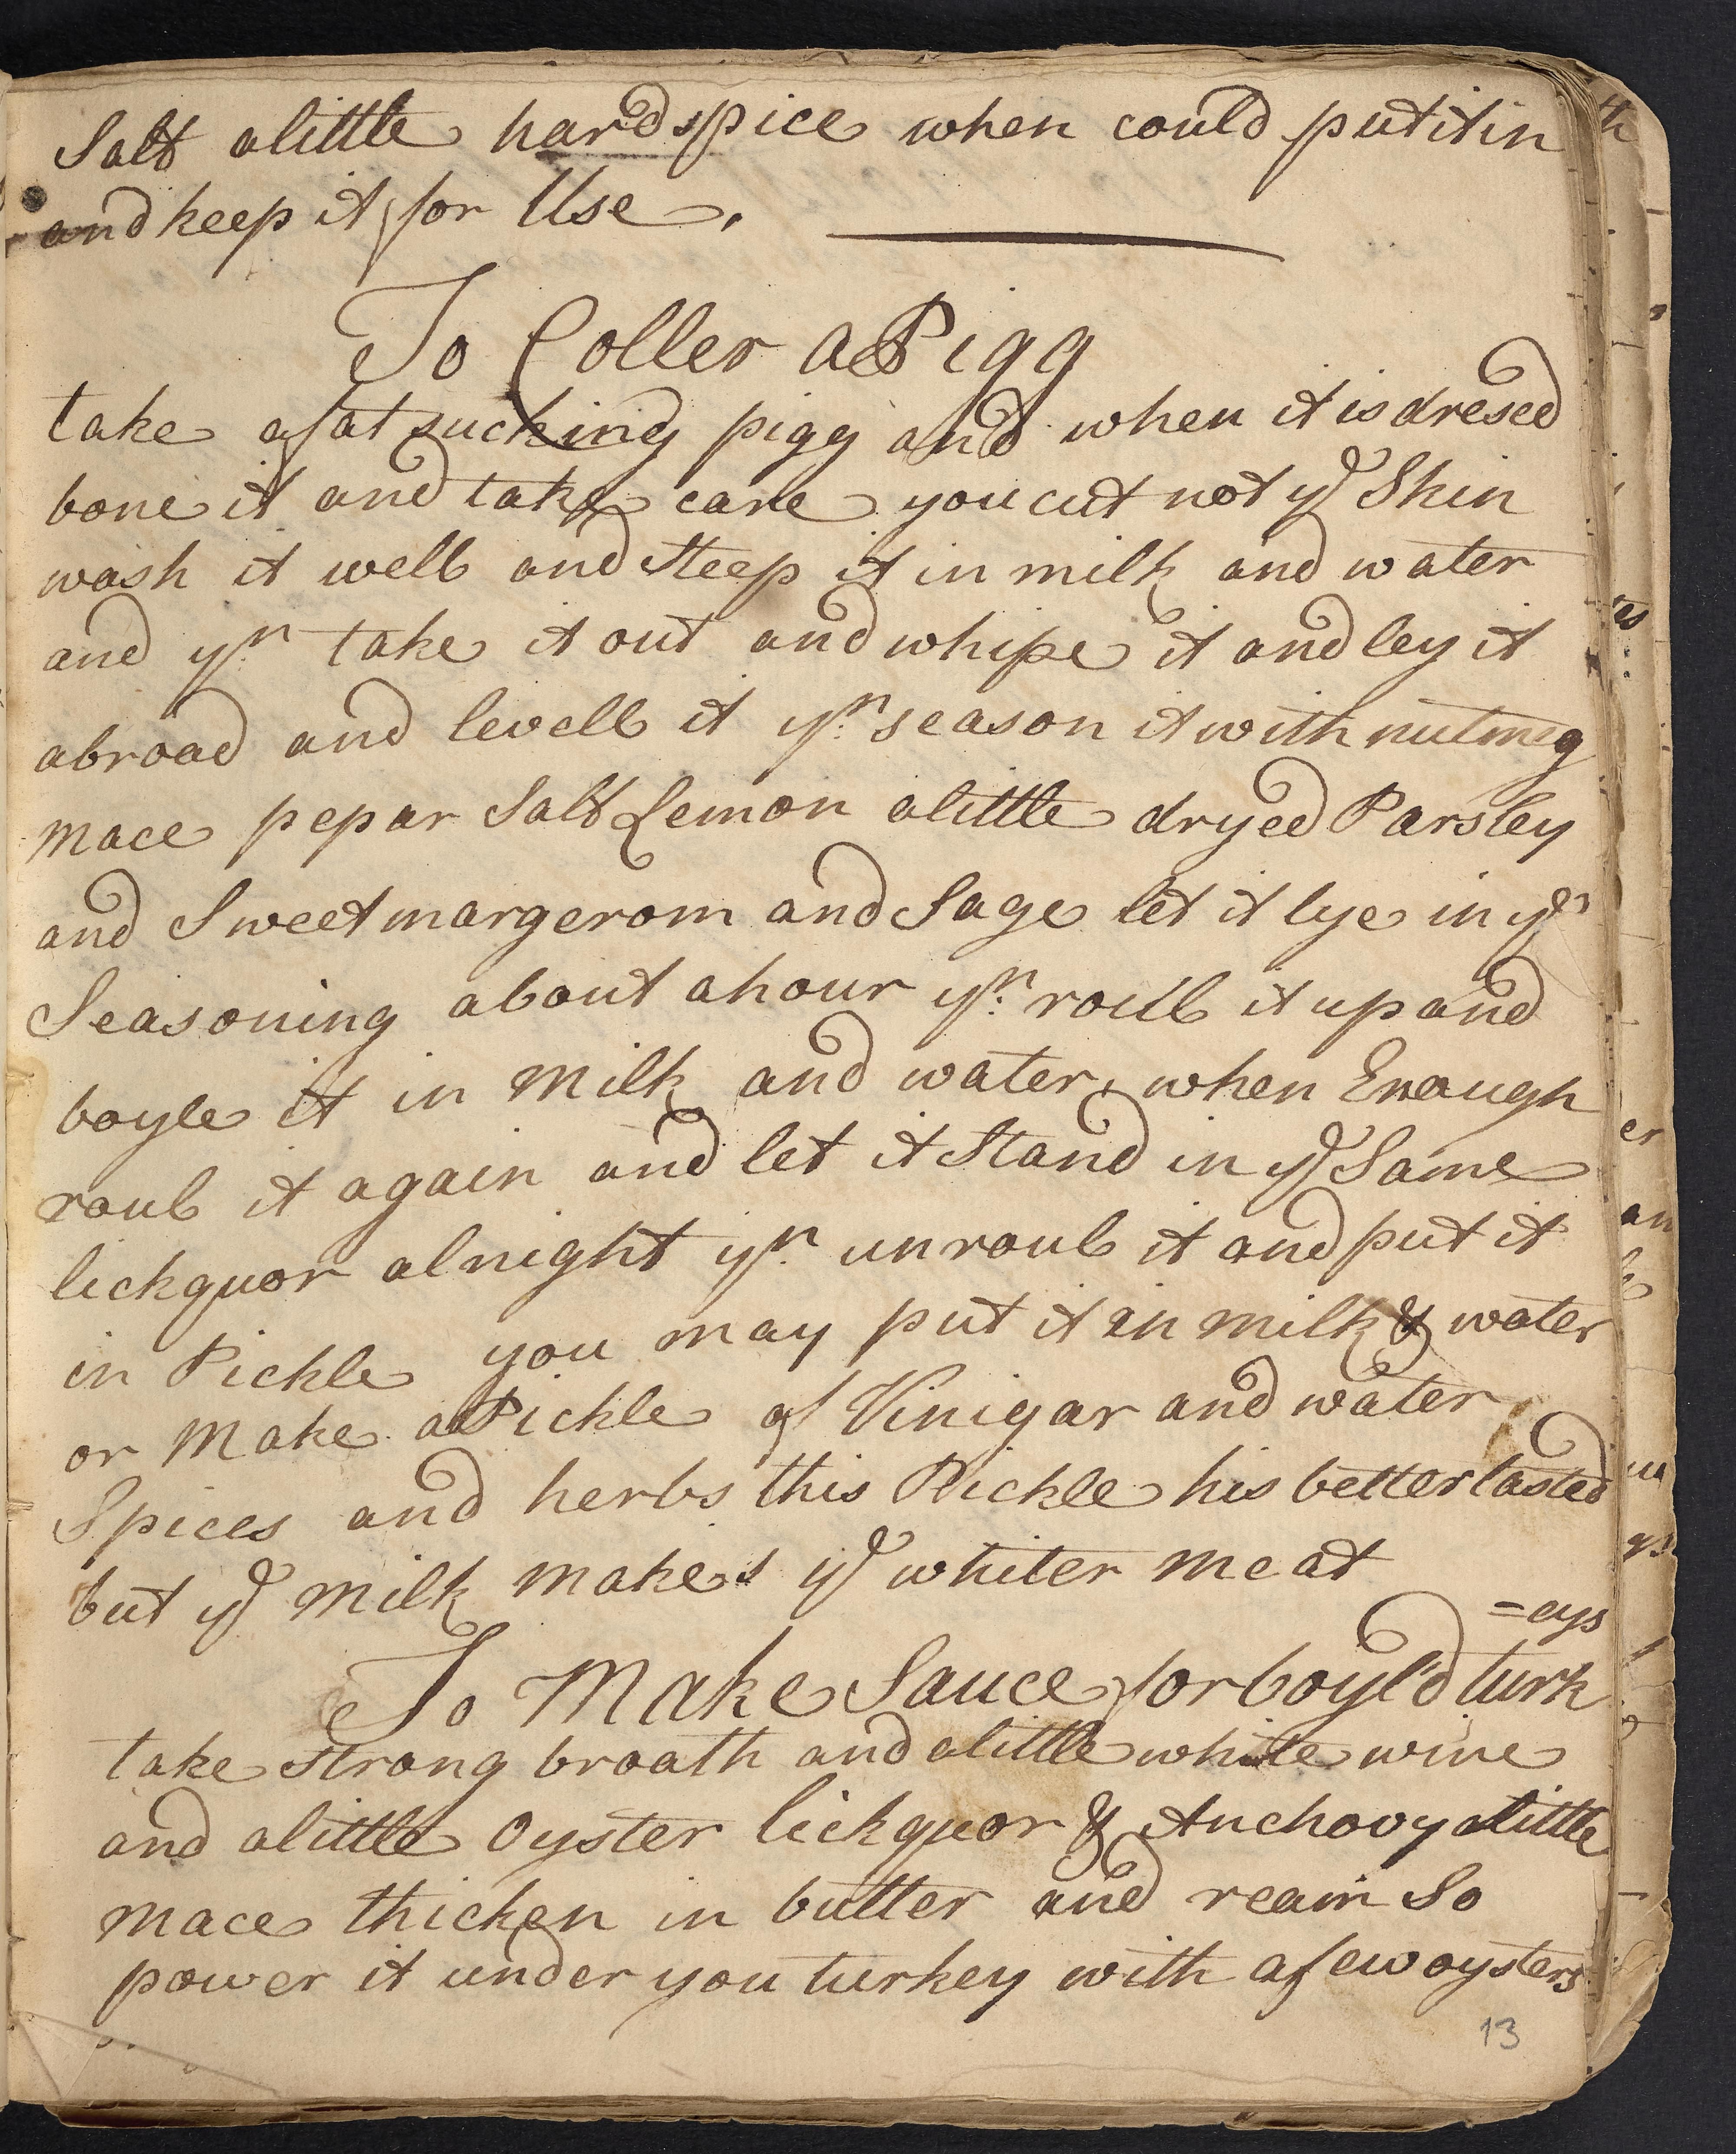 Salt alittle hard spice when could putitin
and keep it for Use.
To Coller a Pigg
take afat sucking pigg and when it is dresed
bone it and take care you cut not ye Skin
wash it well and Steep it in milk and water
and yn take it out and whipe it and ley it
abroad and levell it yn season it with nutmeg
mace pepar Salt Lemon alittle dryed Parsley
and Sweet margerom and Sage let it lye in ys
Seasoning about ahour yn roul it up and
boyle it in milk and water, when Enough
roul it again and let it Stand in ye Same
lickquor alnight yn unroul it and put it
in Pickle you may put it in milk & water
or make a Pickle of Vinigar and water
Spices and herbs this Pickle his better tasted
but ye milk makes ye whiter meat
=eys
To Make Sauce for boyl'd turk
take strong broath and alittle white wine
and alittle Oyster lickquor & Anchovy alittle
mace thicken in butter and ream So
power it under you turkey with afew oysters
13